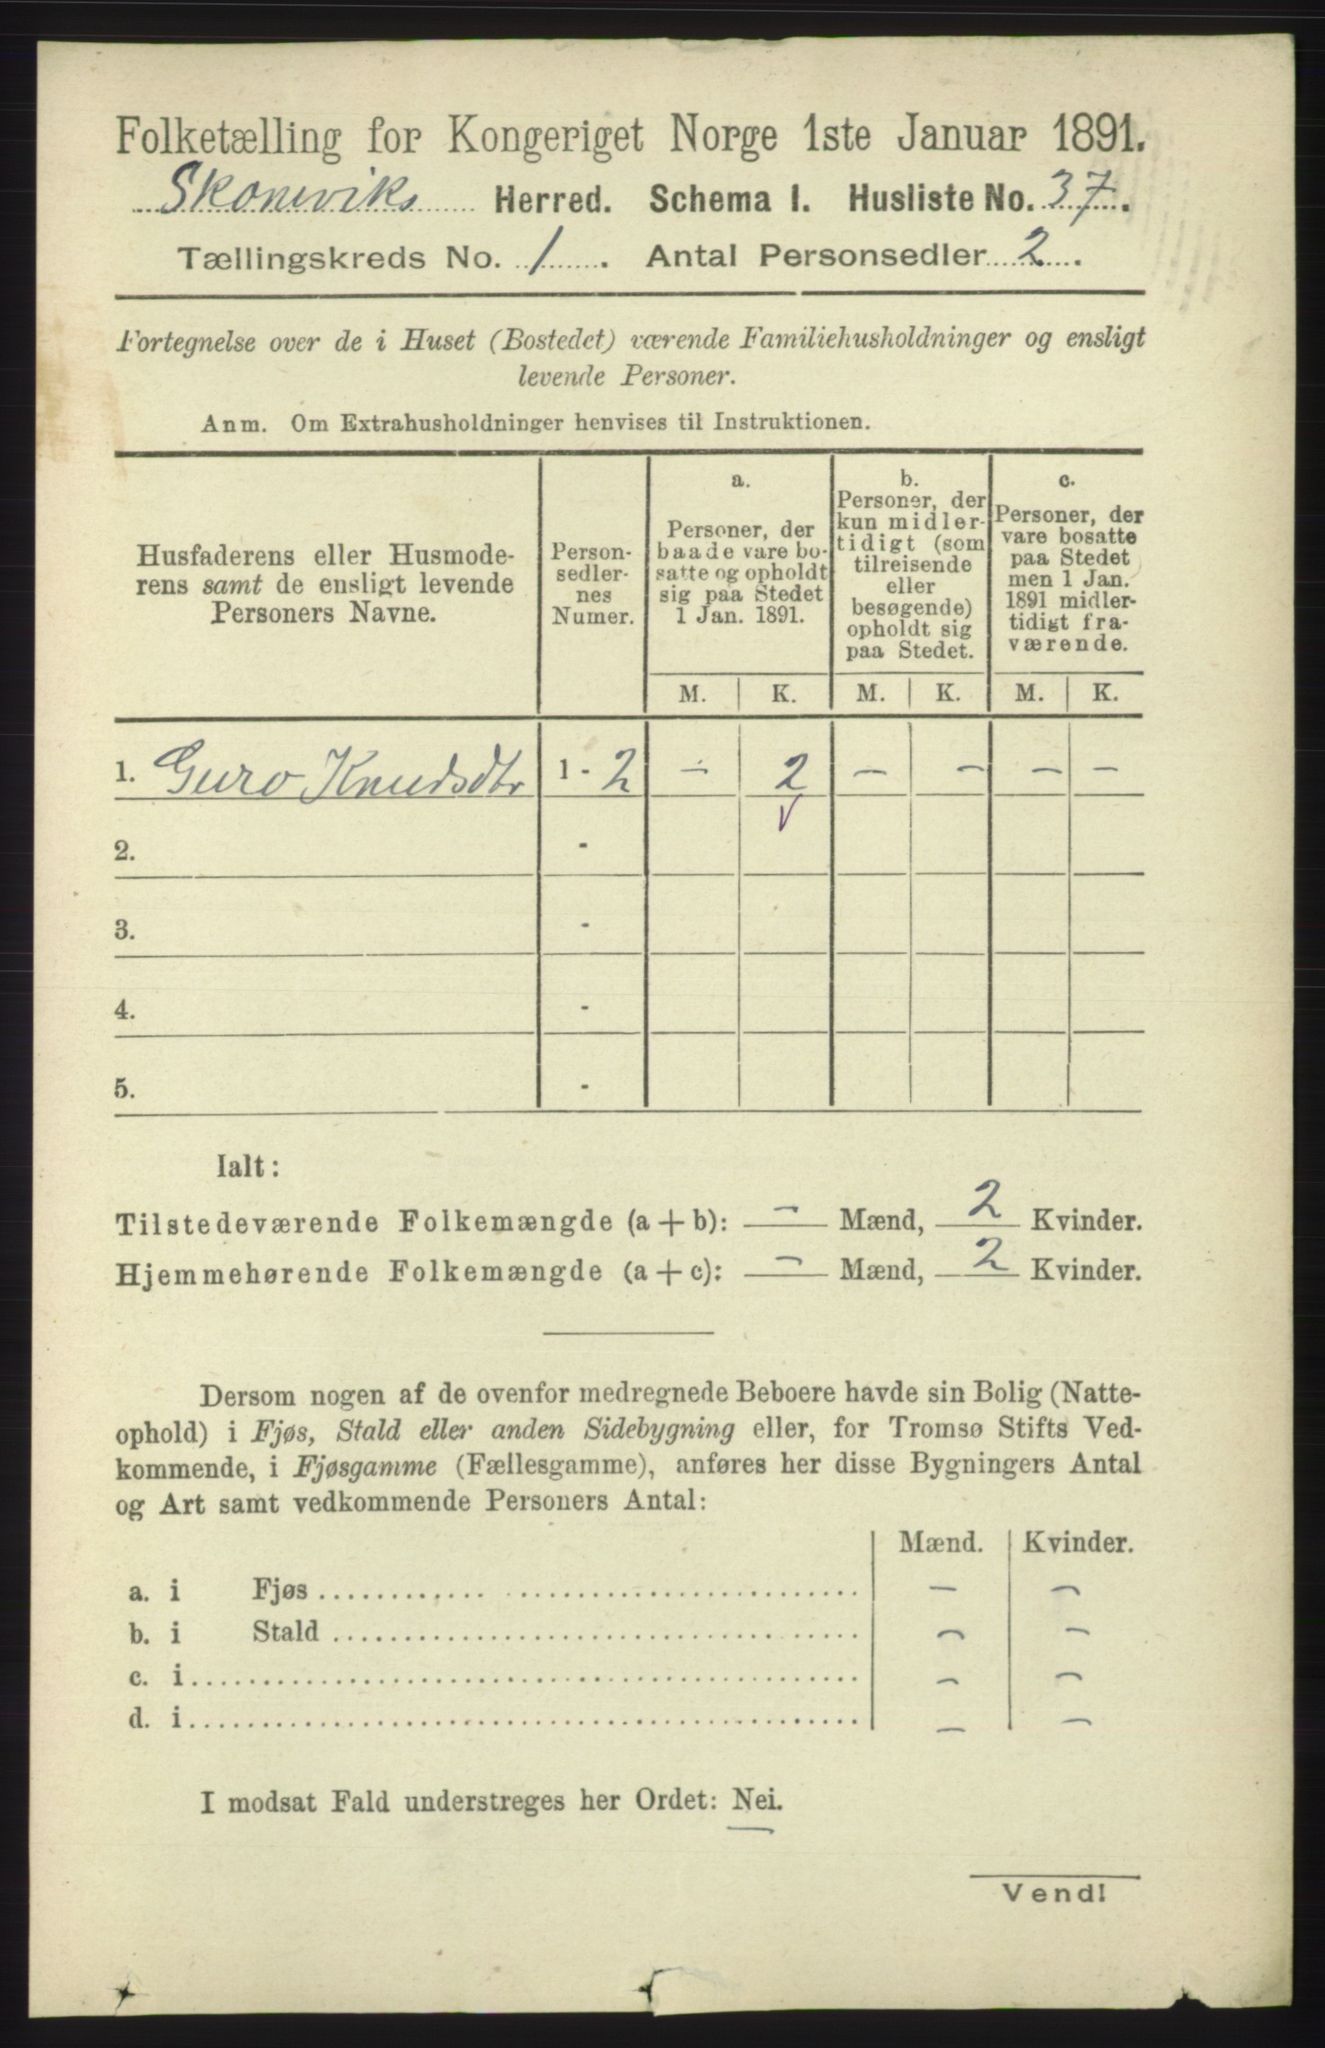 Folketælling for Kongeriget Norge 1ste Januar 1891.
Skoneviks Herred. Schema I. Husliste No. 37.
Tællingskreds No. 1. Antal Personsedler 2.
Fortegnelse over de i Huset (Bostedet) værende Familiehusholdninger og ensligt
levende Personer.
Anm. Om Extrahusholdninger henvises til Instruktionen.
Husfaderens eller Husmode-
rens samt de ensligt levende
Personers Navne.
Person-
sedler-
nes
Numer.
a.
Personer, der
baade vare bo-
satte og opholdt
sig paa Stedet
1 Jan. 1891.
b.
Personer, der
kun midler-
tidigt (som
tilreisende
eller
besøgende)
opholdt sig
paa Stedet.
c.
Personer, der
vare bosatte
paa Stedet
men 1 Jan.
1891 midler-
tidigt fra-
værende.
M. K. M. K. M. K.
1. Guro Knudsdtr 1 - 2 – 2 – – – –
2. -
3. -
4. -
5. -
Ialt:
Tilstedeværende Folkemængde (a + b): – Mænd, 2 Kvinder.
Hjemmehørende Folkemængde (a + c): – Mænd, 2 Kvinder.
Dersom nogen af de ovenfor medregnede Beboere havde sin Bolig (Natte-
ophold) i Fjøs, Stald eller anden Sidebygning eller, for Tromsø Stifts Ved-
kommende, i Fjøsgamme (Fællesgamme), anføres her disse Bygningers Antal
og Art samt vedkommende Personers Antal:
Mænd. Kvinder.
a. i Fjøs – –
b. i Stald – –
c. i – –
d. i – –
I modsat Fald understreges her Ordet: Nei.
Vend!